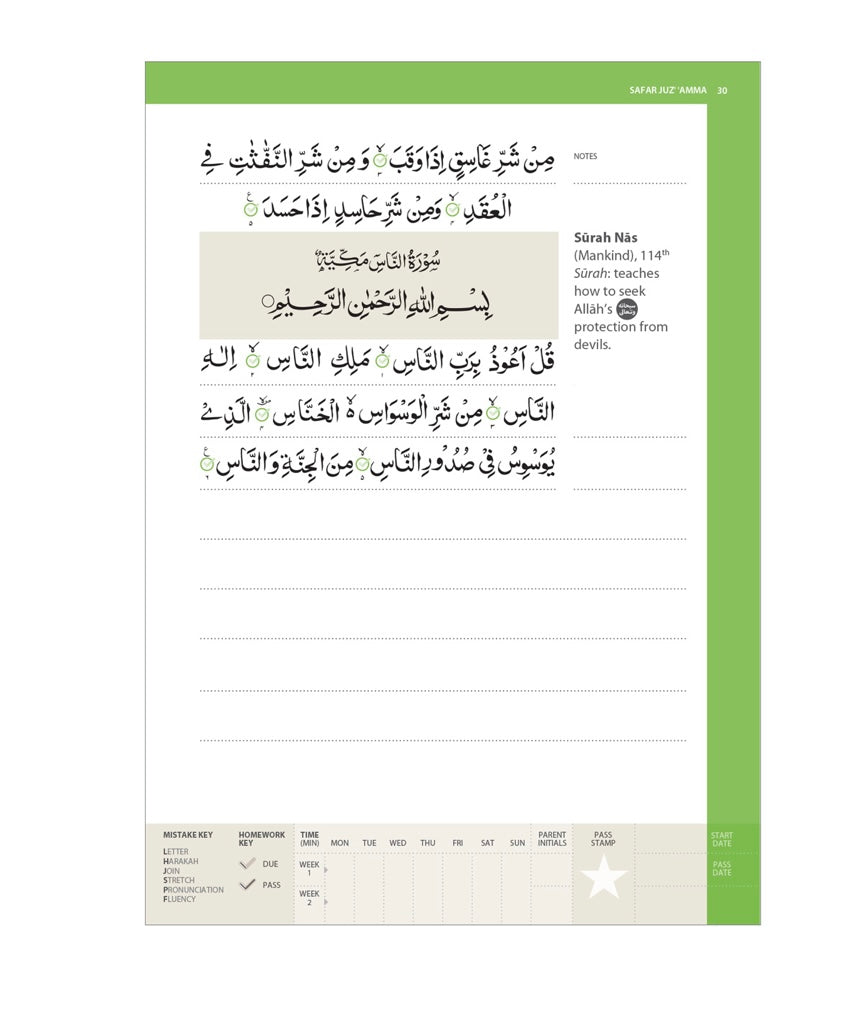 SAFAR JUZ' 'AMMA 30
مِنْ شَرِّ غَاسِقٍ اِذَا وَقَبَ ۙ۳ وَ مِنْ شَرِّ النَّفّٰثٰتِ فِي
الْعُقَدِ ۙ۴ وَمِنْ شَرِّ حَاسِدٍ اِذَا حَسَدَ ۵
NOTES
سُوْرَةُ النَّاسِ مَكِّيَّةٌ
بِسْمِ اللّٰهِ الرَّحْمٰنِ الرَّحِيْمِ
قُلْ اَعُوْذُ بِرَبِّ النَّاسِ ۙ۱ مَلِكِ النَّاسِ ۙ۲ اِلٰهِ
النَّاسِ ۙ۳ مِنْ شَرِّ الْوَسْوَاسِ ۙ الْخَنَّاسِ ۴ الَّذِيْ
يُوَسْوِسُ فِيْ صُدُوْرِ النَّاسِ ۙ۵ مِنَ الْجِنَّةِ وَالنَّاسِ ۶
Sūrah Nās
(Mankind), 114th
Sūrah: teaches
how to seek
Allāh's سبحانه وتعالى
protection from
devils.
MISTAKE KEY
LETTER
HARAKAH
JOIN
STRETCH
PRONUNCIATION
FLUENCY
HOMEWORK
KEY
DUE
PASS
TIME
(MIN)
MON TUE WED THU FRI SAT SUN
PARENT
INITIALS
WEEK
1
WEEK
2
PASS
STAMP
START
DATE
PASS
DATE